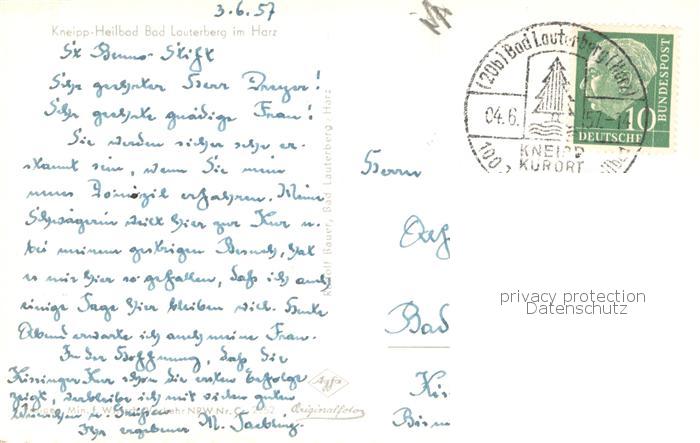 3.6.57
Kneipp-Heilbad Bad Lauterberg im Harz
St. Benno-Stift
Sehr geehrter Herr Dreyer!
Sehr geehrte gnädige Frau!
Sie werden sicher sehr er-
staunt sein, wenn Sie mein
neues Domizil erfahren. Meine
Schwägerin weilt hier zur Kur u.
bei meinem gestrigen Besuch, hat
es mir hier so gefallen, daß ich auch
einige Tage hier bleiben will. Heute
Abend erwarte ich auch meine Frau.
In der Hoffnung, daß die
Kissinger Kur schon die ersten Erfolge
zeigt, verbleibe ich mit vielen guten
Wünschen u. Grüßen
Ihr ergebener M.
Rudolf Bauer, Bad Lauterberg Harz
Min. f. Wirtsch. Verkehr NRW Nr.
Agfa
Originalfoto
(20b) Bad Lauterberg (Harz)
04.6.57-1
KNEIPP
KURORT
100
10
DEUTSCHE
BUNDESPOST
Herrn
Bad
Kis
Bism
privacy protection
Datenschutz